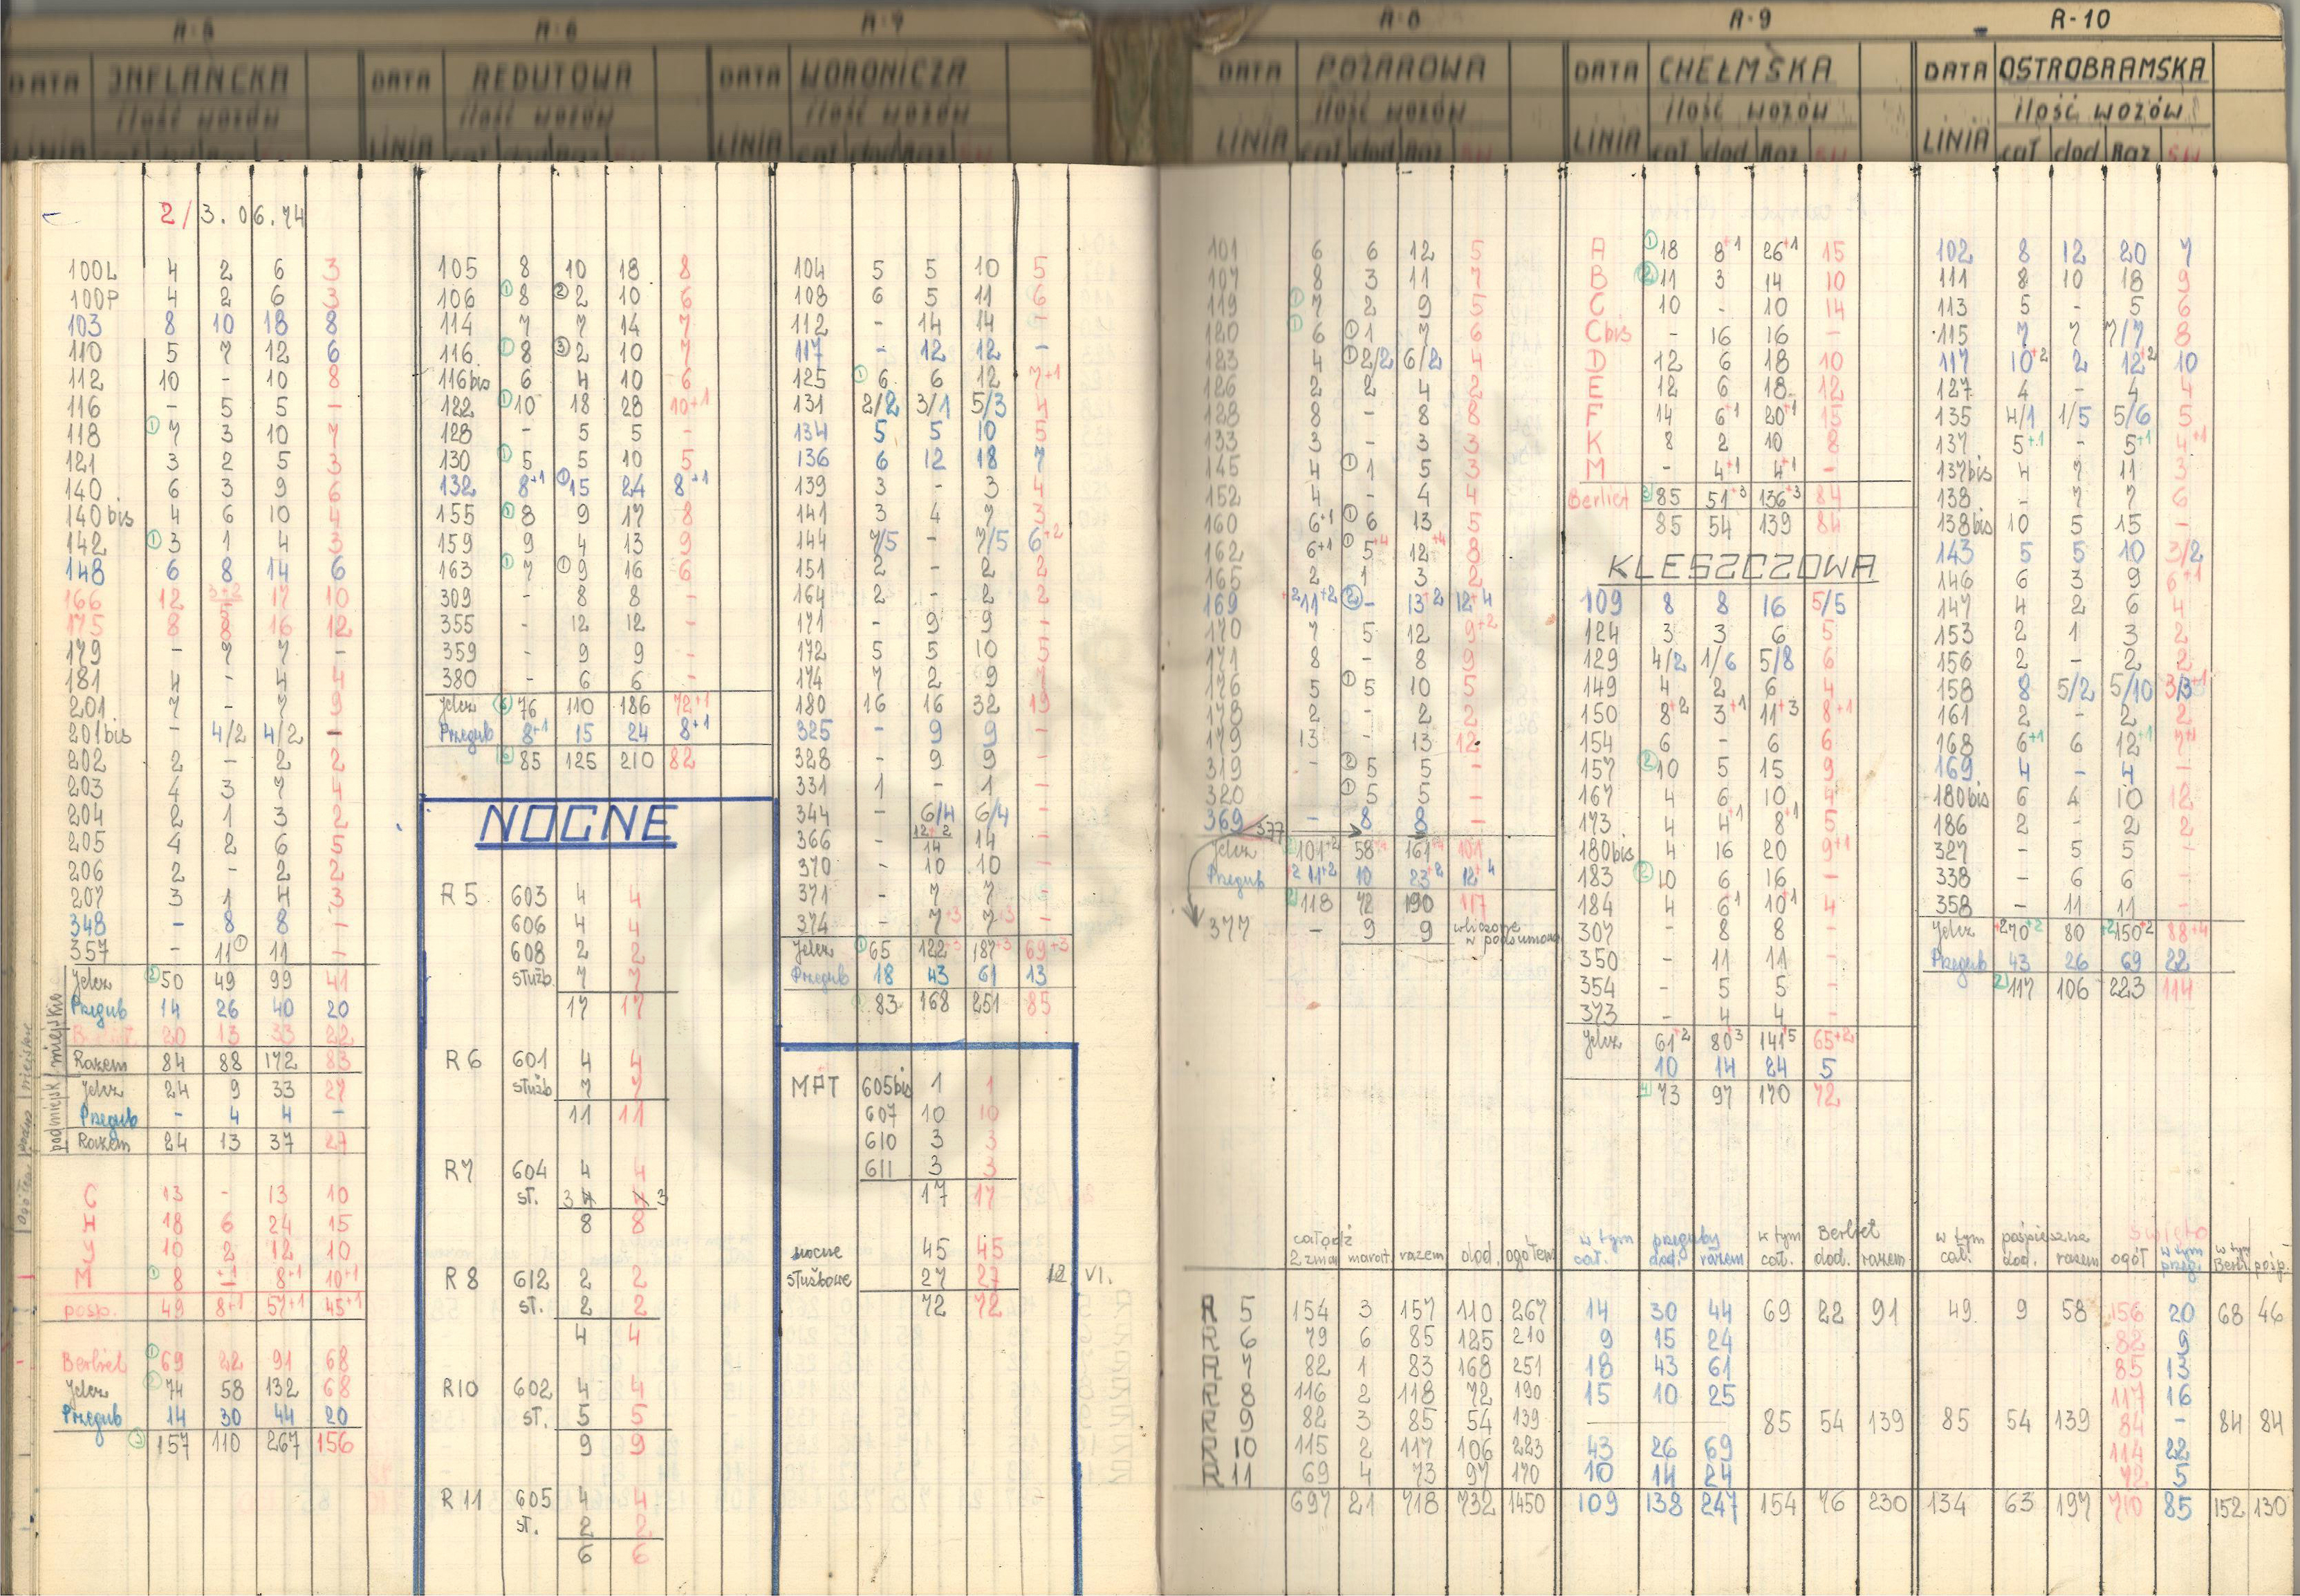 R-5
DATA INFLANCKA
ilość wozów
LINIA cał dod Raz
2/3.06.74
100L 4 2 6 3
100P 4 2 6 3
103 8 10 18 8
110 5 7 12 6
112 10 - 10 8
116 - 5 5 -
118 ①7 3 10 7
121 3 2 5 3
140 6 3 9 6
140bis 4 6 10 4
142 ①3 1 4 3
148 6 8 14 6
166 12 5 17 10
175 8 8 16 12
179 - 7 7 -
181 4 - 4 4
201 7 - 7 9
201bis - 4/2 4/2 -
202 2 - 2 2
203 4 3 7 4
204 2 1 3 2
205 4 2 6 5
206 2 - 2 2
207 3 1 4 3
348 - 8 8 -
357 - 11① 11 -
miejskie
Jelcz ②50 49 99 41
Przegub 14 26 40 20
20 13 33 22
Razem 84 88 172 83
podmiejsk.
Jelcz 24 9 33 27
Przegub - 4 4 -
Razem 24 13 37 27
C 13 - 13 10
H 18 6 24 15
J 10 2 12 10
M ①8 +1 8+1 10+1
posp. 49 8+1 57+1 45+1
Berliet ①69 22 91 68
Jelcz 74 58 132 68
Przegub 14 30 44 20
③157 110 267 156
R-6
DATA REDUTOWA
ilość wozów
LINIA cał dod Raz
105 8 10 18 8
106 ①8 ②2 10 6
114 7 7 14 7
116 ①8 ③2 10 7
116bis 6 4 10 6
122 ①10 18 28 10+1
128 - 5 5 -
130 ①5 5 10 5
132 8+1 ①15 24 8+1
155 ①8 9 17 8
159 9 4 13 9
163 ①7 ①9 16 6
309 - 8 8 -
355 - 12 12 -
359 - 9 9 -
380 - 6 6 -
Jelcz ⑥76 110 186 72+1
Przegub 8+1 15 24 8+1
⑥85 125 210 82
NOCNE
R5 603 4 4
606 4 4
608 2 2
służb. 7 7
17 17
R6 601 4 4
służb 7 7
11 11
R7 604 4 4
st. 3 4 4 3
8 8
R8 612 2 2
st. 2 2
4 4
R10 602 4 4
st. 5 5
9 9
R11 605 4 4
st. 2 2
6 6
R-7
DATA WORONICZA
ilość wozów
LINIA cał dod Raz
104 5 5 10 5
108 6 5 11 6
112 - 14 14 -
117 - 12 12 -
125 ①6 6 12 7+1
131 2/2 3/1 5/3 4
134 5 5 10 5
136 6 12 18 7
139 3 - 3 4
141 3 4 7 3
144 7/5 - 7/5 6+2
151 2 - 2 2
164 2 - 2 2
171 - 9 9 -
172 5 5 10 5
174 7 2 9 7
180 16 16 32 19
325 - 9 9 -
328 - 9 9 -
331 1 - 1 -
344 - 6/4 6/4 -
366 - 12+2 14 14 -
370 - 10 10 -
371 - 7 7 -
374 - 7+3 7+3 -
Jelcz ①65 122+3 187+3 69+3
Przegub 18 43 61 13
83 168 251 85
MPT 605bis 1 1
607 10 10
610 3 3
611 3 3
17 17
nocne 45 45
służbowe 27 27
72 72
12 VI.
R-8
DATA POŻAROWA
ilość wozów
LINIA cał dod Raz
101 6 6 12 5
107 8 3 11 7
119 ①7 2 9 5
120 ①6 ①1 7 6
123 4 ①2/2 6/2 4
126 2 2 4 2
128 8 - 8 8
133 3 - 3 3
145 4 ①1 5 3
152 4 - 4 4
160 6+1 ①6 13 5
162 6+1 ①5+4 12+4 8
165 2 1 3 2
169 +2 11+2 ②- 13+2 12+4
170 7 5 12 9+2
171 8 - 8 9
176 5 ①5 10 5
178 2 - 2 2
179 13 - 13 12
319 - ②5 5 -
320 - ①5 5 -
369 377 - 8 8 -
Jelcz 101+2 58 161 101
Przegub +2 11+2 10 23+2 12+4
②118 72 190 117
377 - 9 9 wliczone w podsumow.
R-9
DATA CHEŁMSKA
ilość wozów
LINIA cał dod Raz
A ①18 8+1 26+1 15
B ②11 3 14 10
C 10 - 10 14
Cbis - 16 16 -
D 12 6 18 10
E 12 6 18 12
F 14 6+1 20+1 15
K 8 2 10 8
M - 4+1 4+1 -
Berliet ③85 51+3 136+3 84
85 54 139 84
KLESZCZOWA
109 8 8 16 5/5
124 3 3 6 5
129 4/2 1/6 5/8 6
149 4 2 6 4
150 8+2 3+1 11+3 8+1
154 6 - 6 6
157 ②10 5 15 9
167 4 6 10 4
173 4 4+1 8+1 5
180bis 4 16 20 9+1
183 ②10 6 16 -
184 4 6+1 10+1 4
307 - 8 8 -
350 - 11 11 -
354 - 5 5 -
373 - 4 4 -
Jelcz 61+2 80+3 141+5 65+2
10 14 24 5
④73 97 170 72
R-10
DATA OSTROBRAMSKA
ilość wozów
LINIA cał dod Raz św
102 8 12 20 7
111 8 10 18 9
113 5 - 5 6
115 7 7 7/7 8
117 10+2 2 12+2 10
127 4 - 4 4
135 4/1 1/5 5/6 5
137 5+1 - 5+1 4+1
137bis 4 7 11 3
138 - 7 7 6
138bis 10 5 15 -
143 5 5 10 3/2
146 6 3 9 6+1
147 4 2 6 4
153 2 1 3 2
156 2 - 2 2
158 8 5/2 5/10 3/3+1
161 2 - 2 2
168 6+1 6 12+1 7+1
169 4 - 4 -
180bis 6 4 10 12
186 2 - 2 2
327 - 5 5 -
338 - 6 6 -
358 - 11 11 -
Jelcz +2 70+2 80 +2 150+2 88+4
Przegub 43 26 69 22
②117 106 223 114
całodz w tym przeguby w tym Berliet w tym pośpieszne święto
2 zmian marat. razem dod. ogółem cał. dod. razem cał. dod. razem cał. dod. razem ogół w tym przeg. w tym Berl. pośp.
R 5 154 3 157 110 267 14 30 44 69 22 91 49 9 58 156 20 68 46
R 6 79 6 85 125 210 9 15 24 82 9
R 7 82 1 83 168 251 18 43 61 85 13
R 8 116 2 118 72 190 15 10 25 117 16
R 9 82 3 85 54 139 — 85 54 139 85 54 139 84 - 84 84
R 10 115 2 117 106 223 43 26 69 114 22
R 11 69 4 73 97 170 10 14 24 72 5
697 21 718 732 1450 109 138 247 154 76 230 134 63 197 710 85 152 130